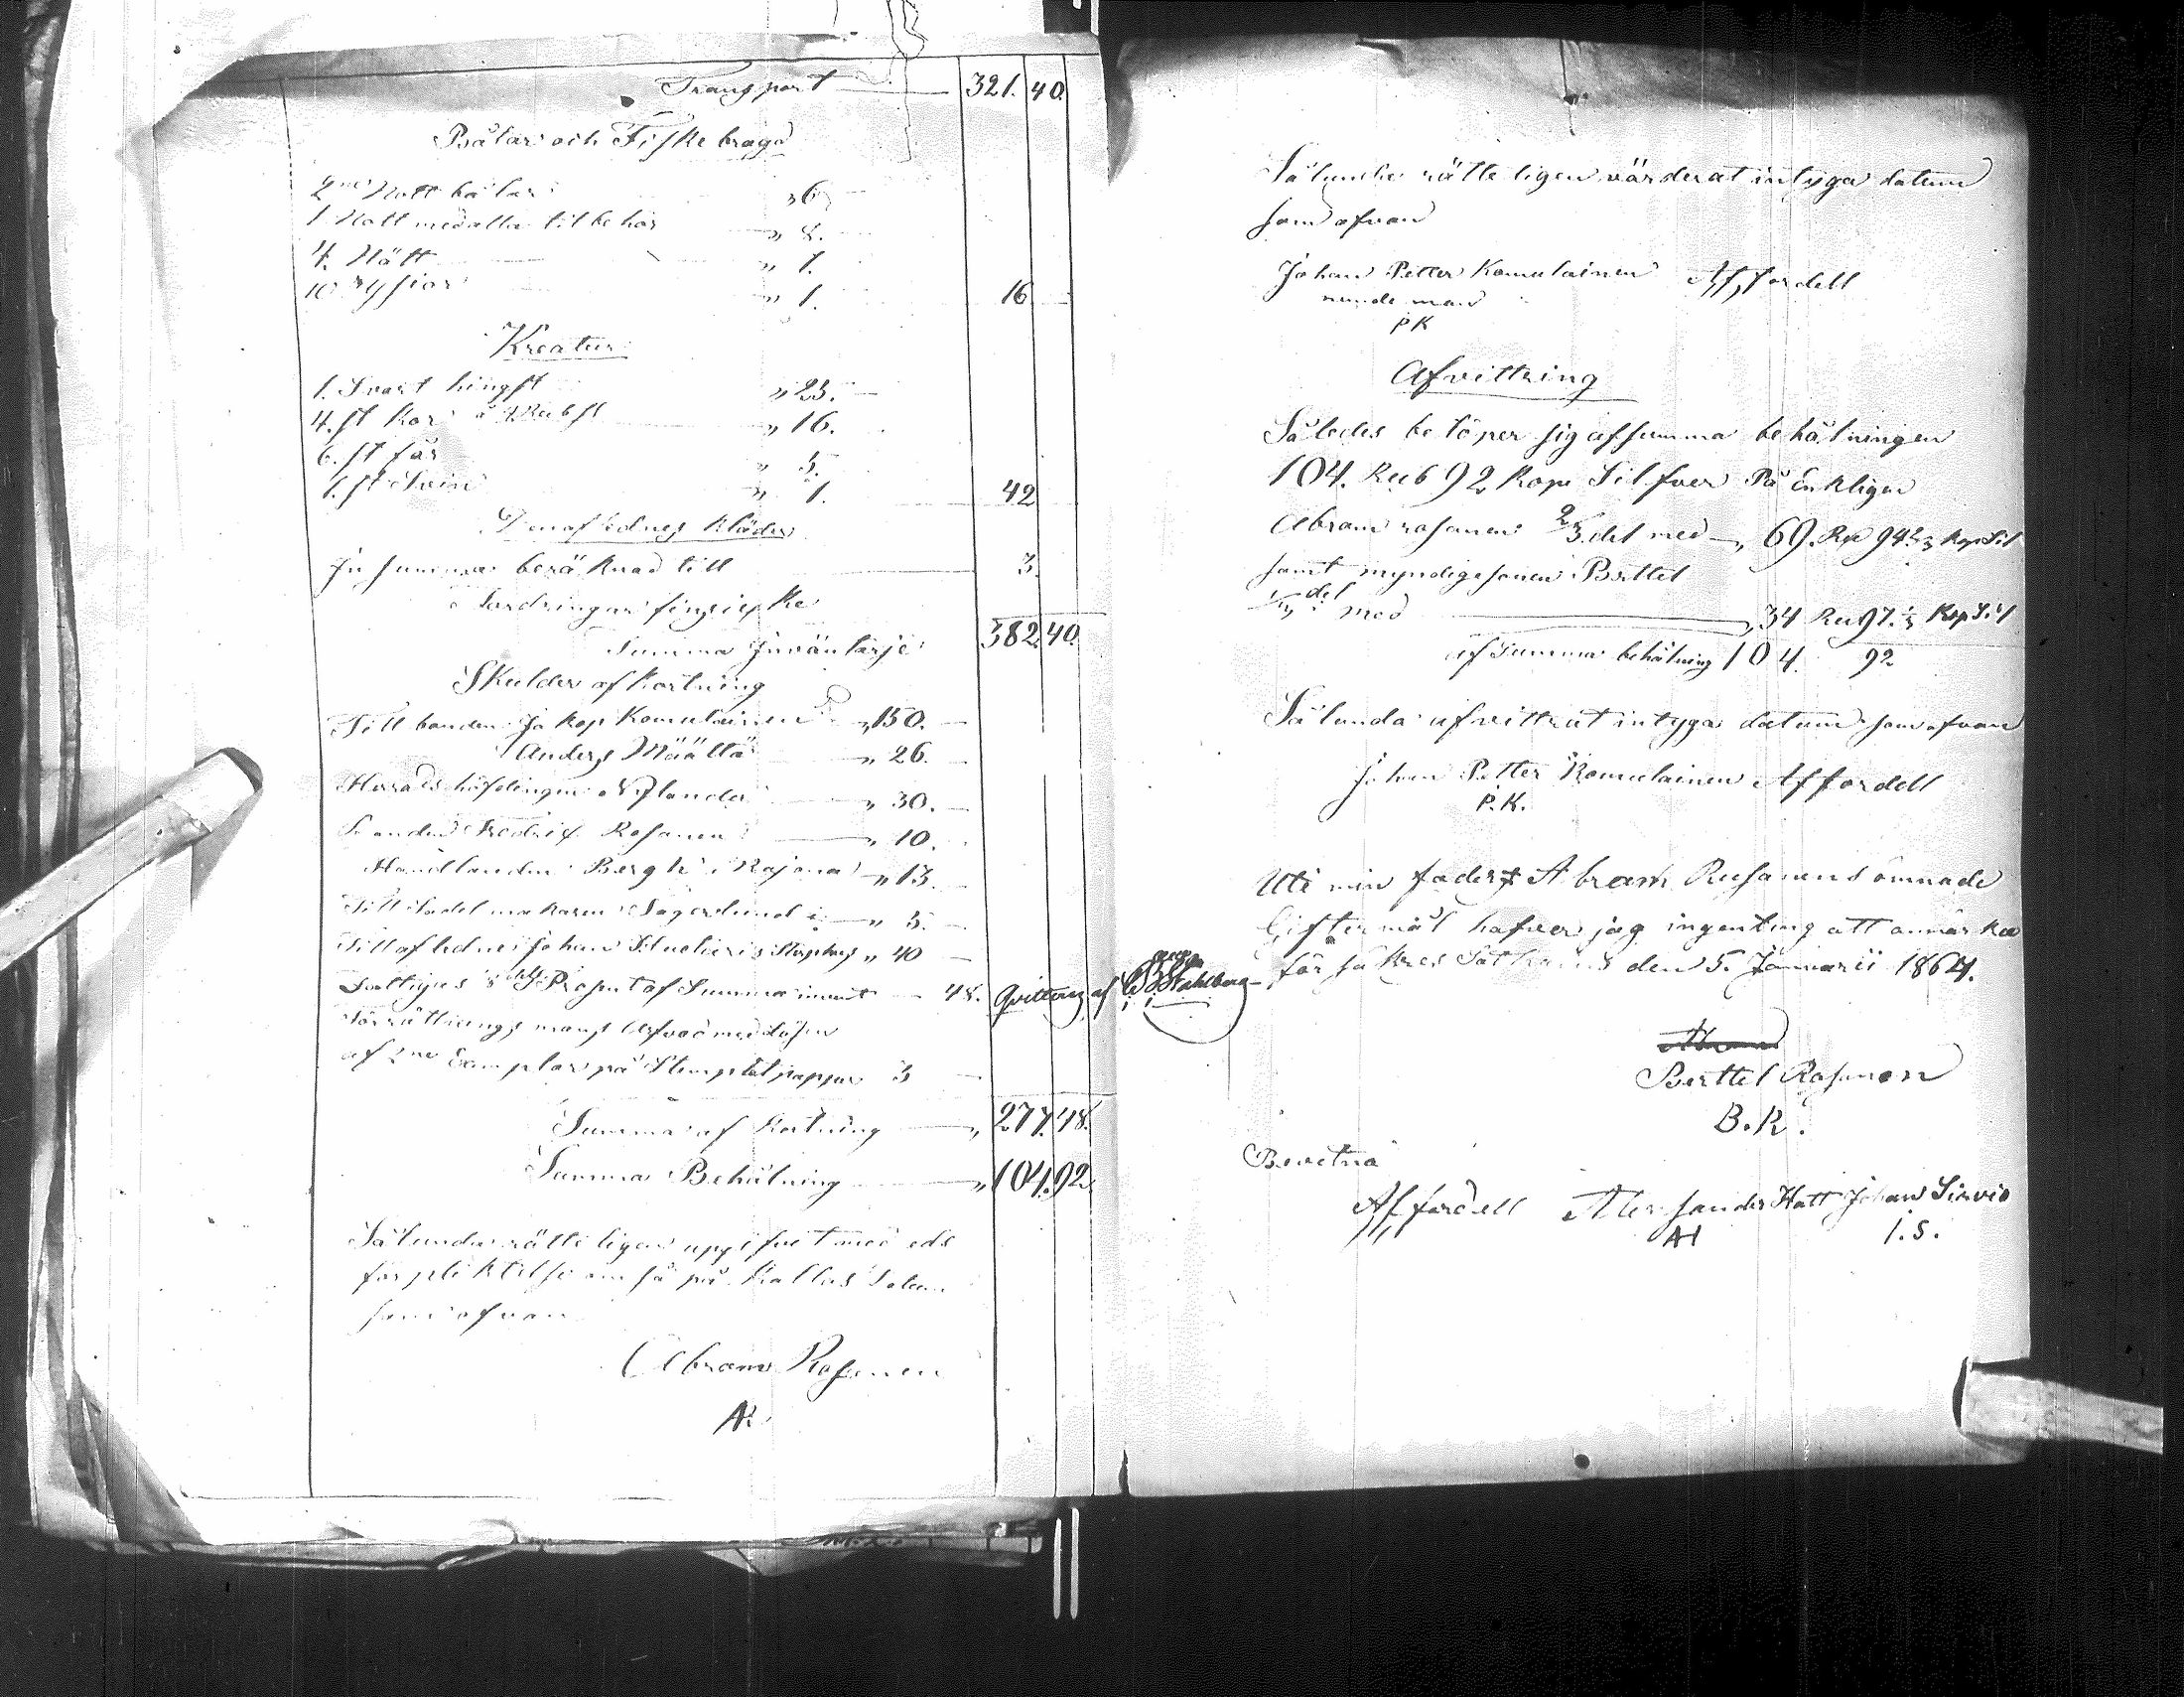 Transport 321. 40.
Båtar och Fiske bragd
2ne Nott båtar „ 6
1 Nott med alla til be hör „ 8.
4. Nätt „ 1.
10 rysior „ 1. 16
Kreatur
1. Svart hingst „ 25.
4. st Kor à 4 Rub st „ 16.
6. st får „
1. st Svin „ 1. 42
Den aflednes Kläder
In summa beräknad till 3.
Fordringar
Summa Inväntarje 382 40.
Skulder af Kortning
Till bonden Jakop Komulainen „ 150.
Anders Määttä „ 26.
Härads höfdingen Nylander „ 30.
Bonden Fredrik Rasanen „ 10.
Handlanden Bergh i Kajana „ 13.
Till Sadelmakaren Sagerlund „ 5.
Till aflednes Johan „ 40
Fattiges Prosent af Summa 48. qvitteras af Wahlberg
Förrättnings mans Arfvode med lösen
af 2ne Exemplar på Stemplat papper 3
Summa af Kortning „ 277. 48.
Summa Behålning „ 104. 92.
Sålunda rätteligen uppgifvit med eds
förpliktelse om så på Kallas Datum
som ofvan
Abram Rasanen
AR
Sålunda rätteligen värderat intyga datum
som ofvan
Johan Petter Komulainen Affordell
nämdeman
P K
Afvittring
Således belöper sig af summa behålningen
104. Rub 92 Kop Silfver På Enklingen
Abram rasanen 2/3 del med „ 69. Rub 94 2/3 Kop Sil
samt myndige sonen Berttel
1/3 del med „ 34 Ru 97. 1/3 Kop Sil
af Summa behålning 104. 92
Sålunda afvittrat intyga datum som ofvan
Johan Petter Komulainen Affordell
P. K.
Uti min faders Abram Rasanens ämnade
Giftermål hafver jag ingenting att anmärka
försäkras den 5. Januarii 1864.
Berttel Rasanen
B. R.
Bevitna
Affordell Alexsander Hatt Johan Sirvio
AH I. S.